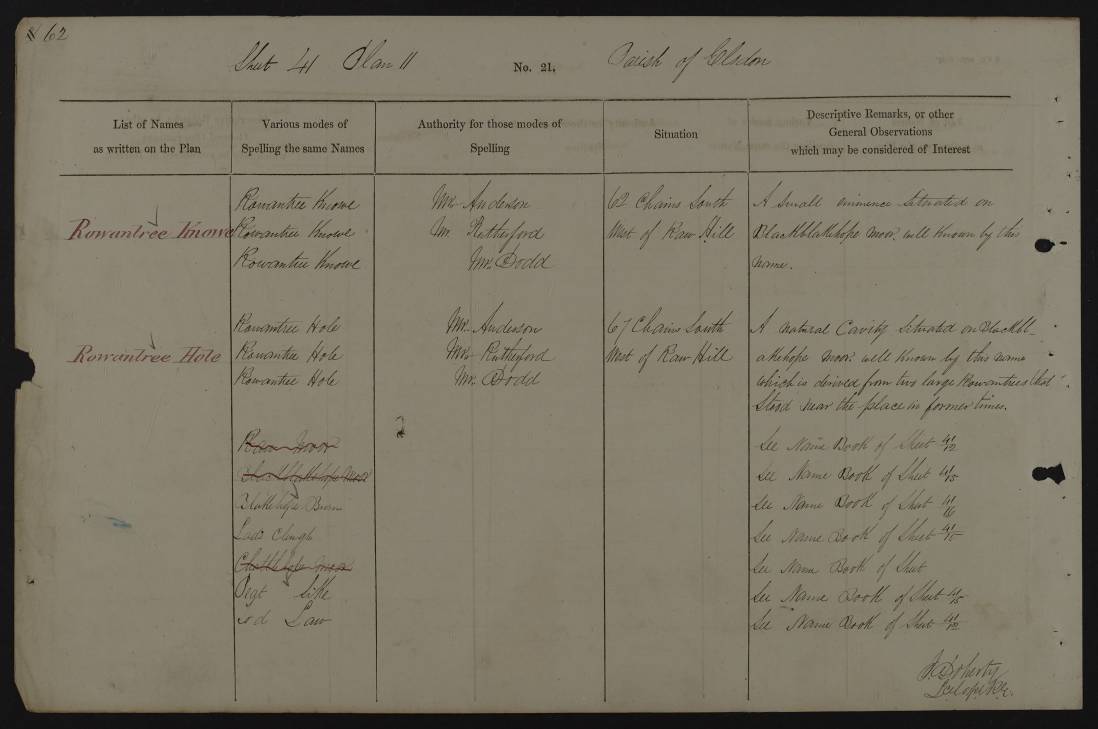 62
Sheet 41 Plan 11 No. 21. Parish of Elsdon
List of Names as written on the Plan
Various modes of Spelling the same Names
Authority for those modes of Spelling
Situation
Descriptive Remarks, or other General Observations which may be considered of Interest
Rowantree Knowe
Rowantree Knowe
Rowantree Knowe
Rowantree Knowe
Mr. Anderson
Mr. Rutherford
Mr. Dodd
62 Chains South
West of Raw Hill
A Small eminence Situated on
Blackblakehope Moor. well known by this
name.
Rowantree Hole
Rowantree Hole
Rowantree Hole
Rowantree Hole
Mr. Anderson
Mr. Rutherford
Mr. Dodd
67 Chains South
West of Raw Hill
A natural Cavity Situated on Blackbl-
akehope Moor. well known by this name
which is derived from two large Rowantrees that
Stood near the place in former times.
Raw Moor
See Name Book of Sheet 41/12
Blackblakehope Moor
See Name Book of Sheet 41/15
Blakehope Burn
See Name Book of Sheet 41/16
Clough
See Name Book of Sheet 41/15
Moor
See Name Book of Sheet
Sike
See Name Book of Sheet 41/15
Law
See Name Book of Sheet 41/12
J. Doherty